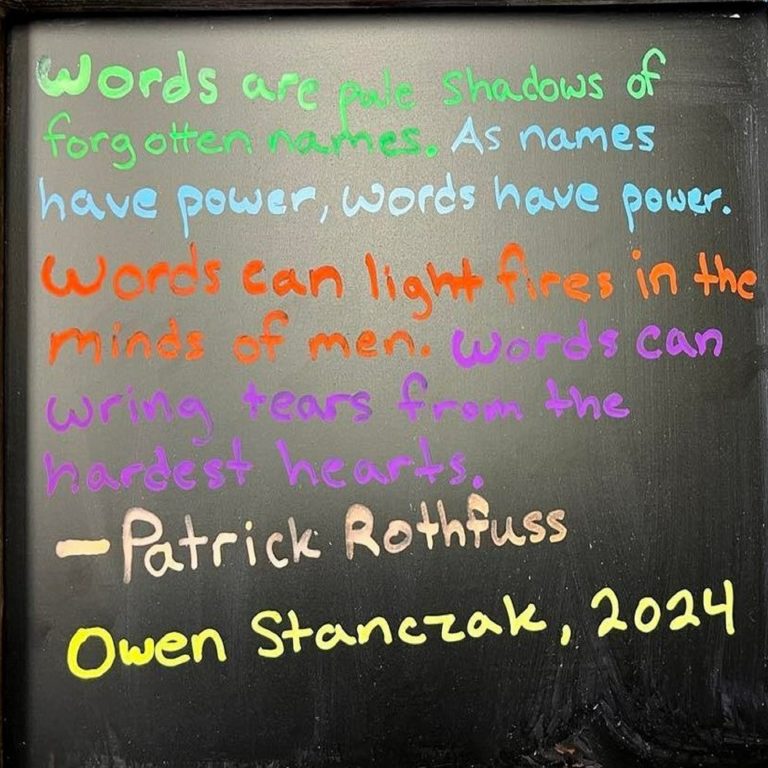 Words are pale shadows of
forgotten names. As names
have power, words have power.
Words can light fires in the
minds of men. Words can
wring tears from the
hardest hearts.
—Patrick Rothfuss
Owen Stanczak, 2024